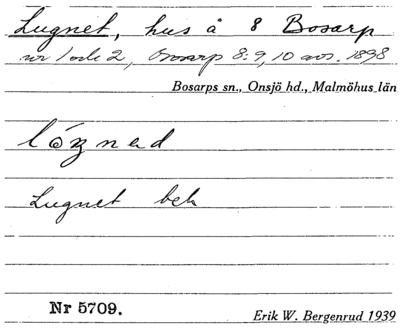 Lugnet, hus å 8 Bosarp
nr 1 och 2, Bosarp 8:9, 10 avs. 1898
Bosarps sn., Onsjö hd., Malmöhus län
lózned
Lugnet beb
Nr 5709.
Erik W. Bergenrud 1939